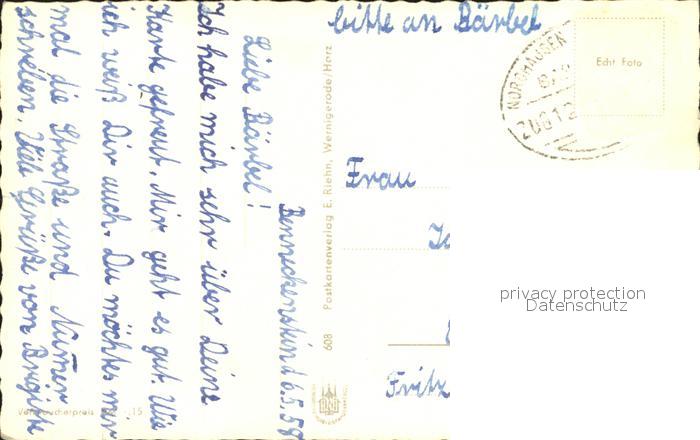 bitte an Bärbel
Benneckenstein d 6.5.58
Liebe Bärbel!
Ich habe mich sehr über Deine
Karte gefreut. Mir geht es gut. Wie
ich weiß Dir auch. Du möchtes mir
mal die Straße und Numer
schreiben. Viele Grüße von Brigitte
Verbraucherpreis 15
608 Postkartenverlag E. Riehn, Wernigerode/Harz
NORDHAUSEN
ZUG 12
Echt Foto
Frau
Fritz
privacy protection
Datenschutz